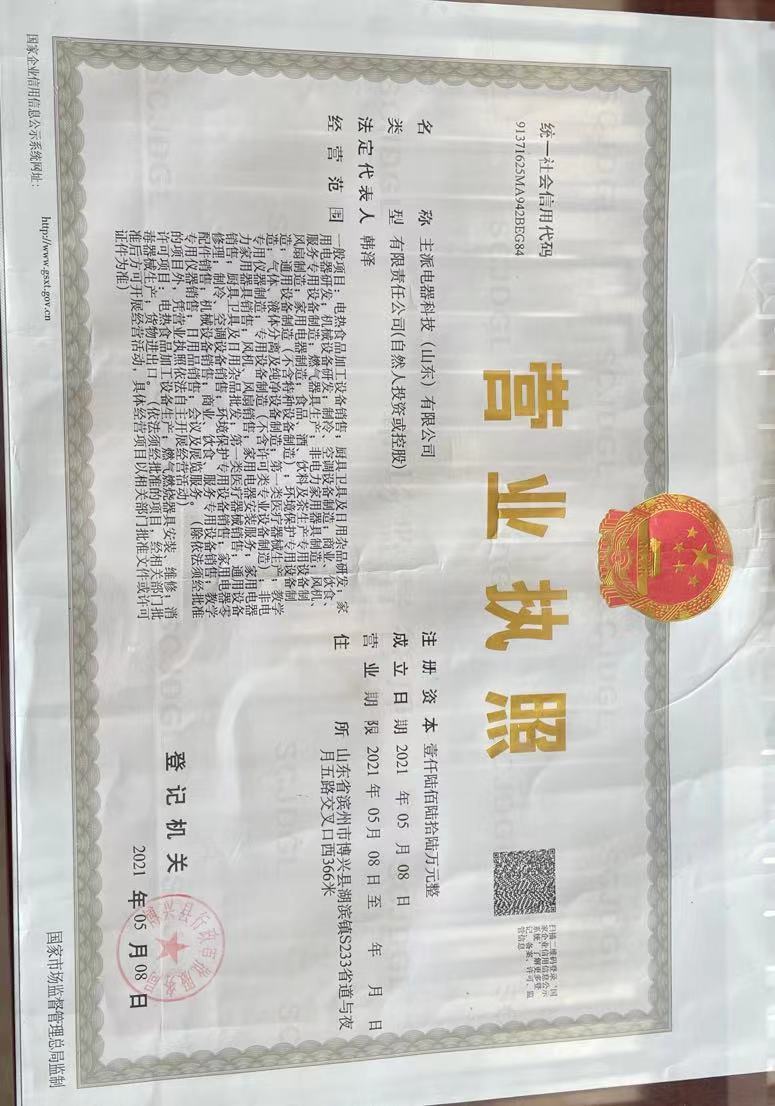 统一社会信用代码
91371625MA942BEG84
营业执照
扫描二维码登录"国
家企业信用信息公示
系统"了解更多登
记、备案、许可、监
管信息
名称 主派电器科技（山东）有限公司
类型 有限责任公司(自然人投资或控股)
法定代表人 韩泽
经营范围 一般项目：电热食品加工设备销售；厨具卫具及日用杂品研发；家
用电器研发；机械设备研发；制冷、空调设备制造；商业、饮食、
服务专用设备制造；燃气器具生产；非电力家用器具制造；风机、
风扇制造；家用电器制造；食品、酒、饮料及茶生产专用设备制
造；通用设备制造（不含特种设备制造）；环境保护专用设备制
造；气体、液体分离及纯净设备制造；第一类医疗器械生产；教学
专用仪器制造；专用设备制造（不含许可类专业设备制造）；非电
力家用器具销售；风机、风扇销售；家用电器安装服务；家用电器
销售；厨具卫具及日用杂品批发；第一类医疗器械销售；通用设备
修理；制冷、空调设备销售；环境保护专用设备销售；家用电器零
配件销售；机械设备销售；商业、饮食、服务专用设备销售；教学
专用仪器销售；日用品销售；会议及展览服务。（除依法须经批准
的项目外，凭营业执照依法自主开展经营活动）
许可项目：电热食品加工设备生产；燃气燃烧器具安装、维修；消
毒器械生产；货物进出口。（依法须经批准的项目，经相关部门批
准后方可开展经营活动，具体经营项目以相关部门批准文件或许可
证件为准）
注册资本 壹仟陆佰陆拾陆万元整
成立日期 2021 年 05 月 08 日
营业期限 2021 年 05 月 08 日至 年 月 日
住所 山东省滨州市博兴县湖滨镇S233省道与夜
月五路交叉口西366米
登记机关
博兴县行政审批服务局
2021 年 05 月 08 日
国家企业信用信息公示系统网址： http://www.gsxt.gov.cn
国家市场监督管理总局监制